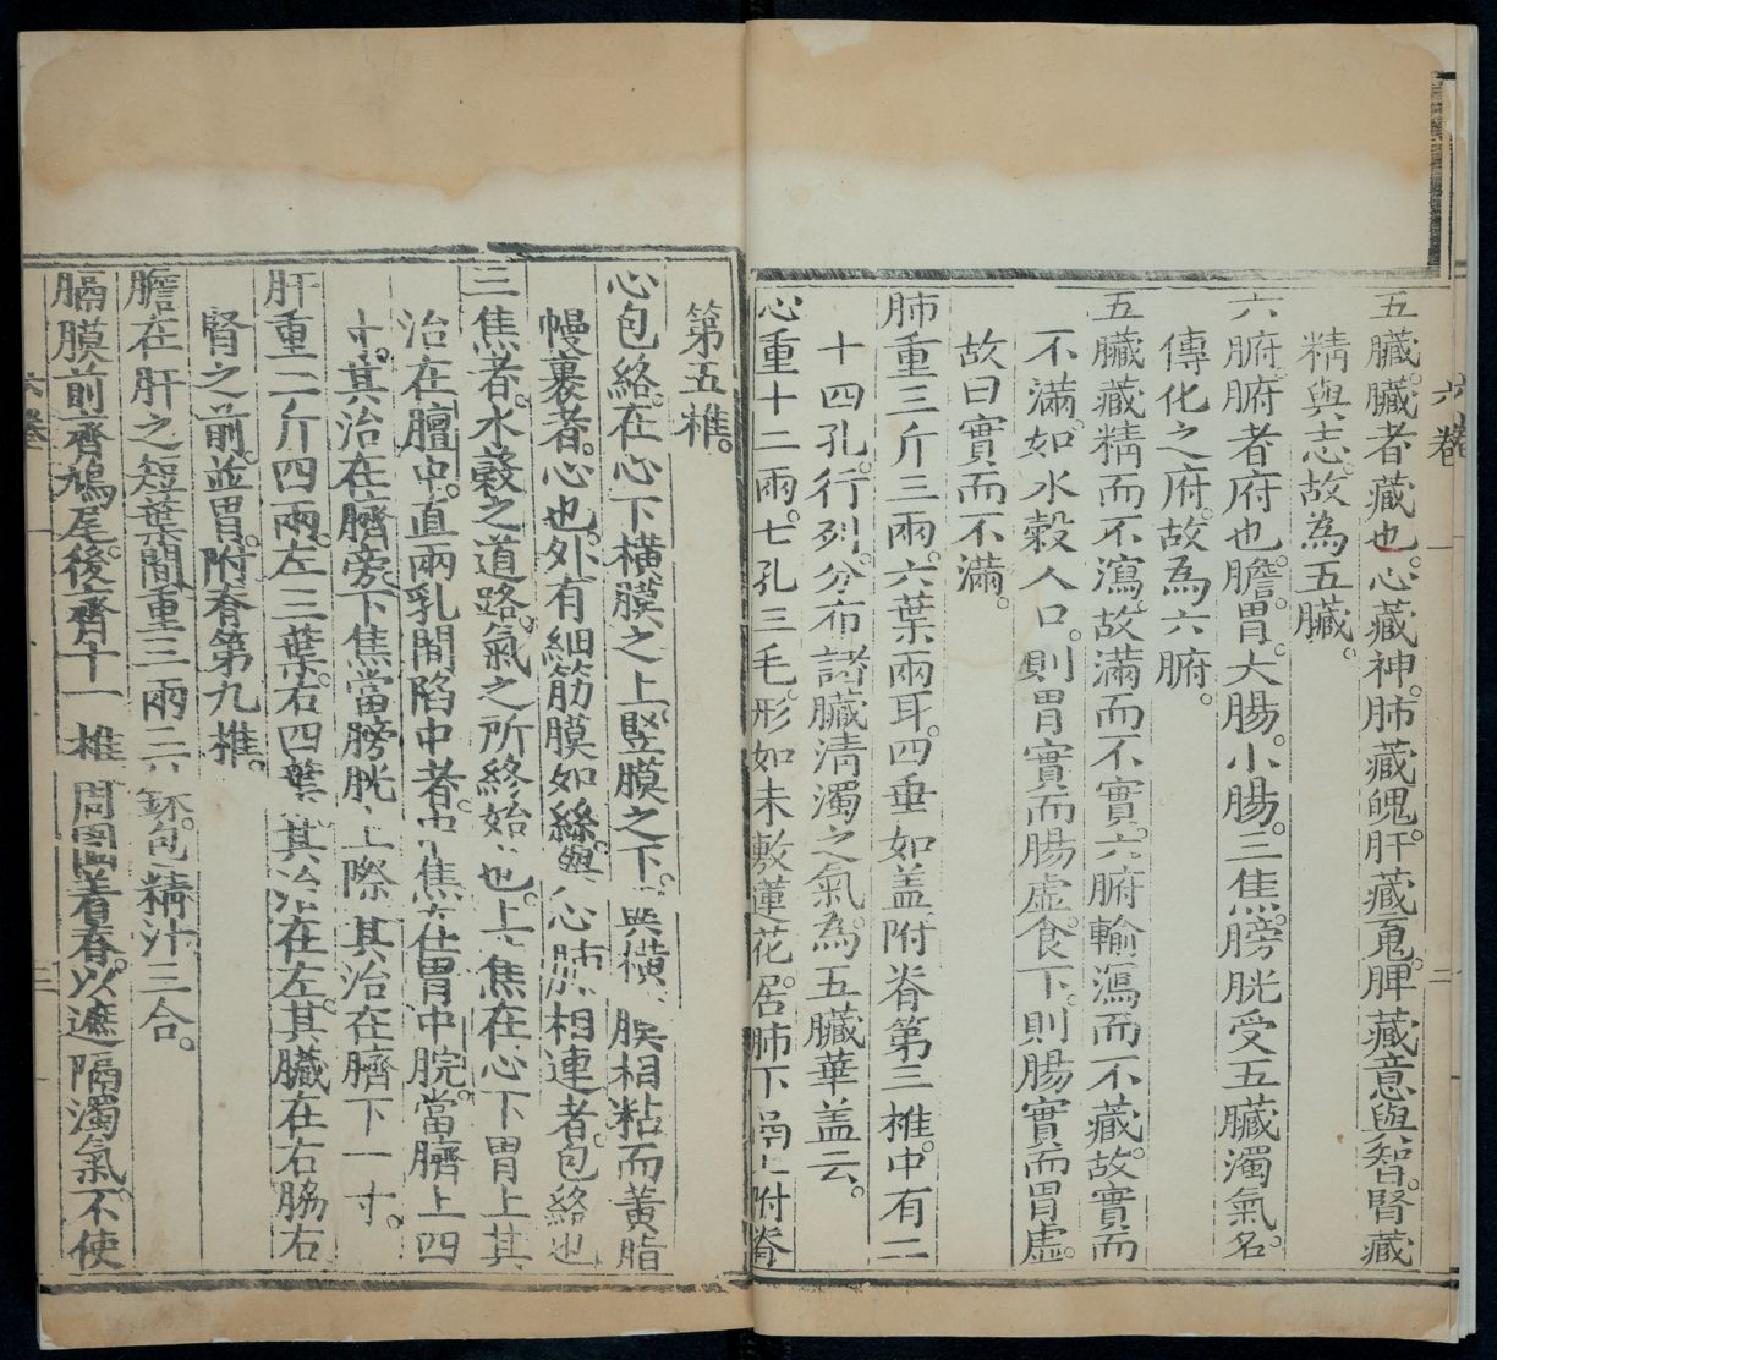 六卷 一 二
五臟。臟者藏也。心藏神。肺藏魄。肝藏䰟。脾藏意與智。腎藏
精與志。故為五臟。
六腑。腑者府也。膽。胃。大腸。小腸。三焦。膀胱受五臟濁氣。名
傳化之府。故為六腑。
五臟藏精而不瀉。故滿而不實。六腑輸瀉而不藏。故實而
不滿。如水榖入口。則胃實而腸虛。食下。則腸實而胃虛。
故曰實而不滿。
肺重三斤三兩。六葉兩耳。四垂如盖。附脊第三椎。中有二
十四孔。行列。分布諸臟清濁之氣。為五臟華盖云。
心重十二兩。七孔三毛。形如未敷蓮花。居肺下鬲上。附脊
第五椎。
心包絡。在心下橫膜之上。竪膜之下。與橫膜相粘而黃脂
幔裹者。心也。外有細筋膜如絲。與心肺相連者。包絡也
三焦者。水穀之道路。氣之所終始也。上焦在心下胃上。其
治在膻中。直兩乳間陷中者。中焦在胃中脘。當臍上四
寸。其治在臍旁。下焦當膀胱上際。其治在臍下一寸。
肝重二斤四兩。左三葉。右四葉。其治在左。其臟在右脇右
腎之前。並胃。附脊第九椎。
膽在肝之短葉間。重三兩三銖。包精汁三合。
膈膜前齊鳩尾。後齊十一椎。周圍着脊。以遮隔濁氣。不使
六卷 二